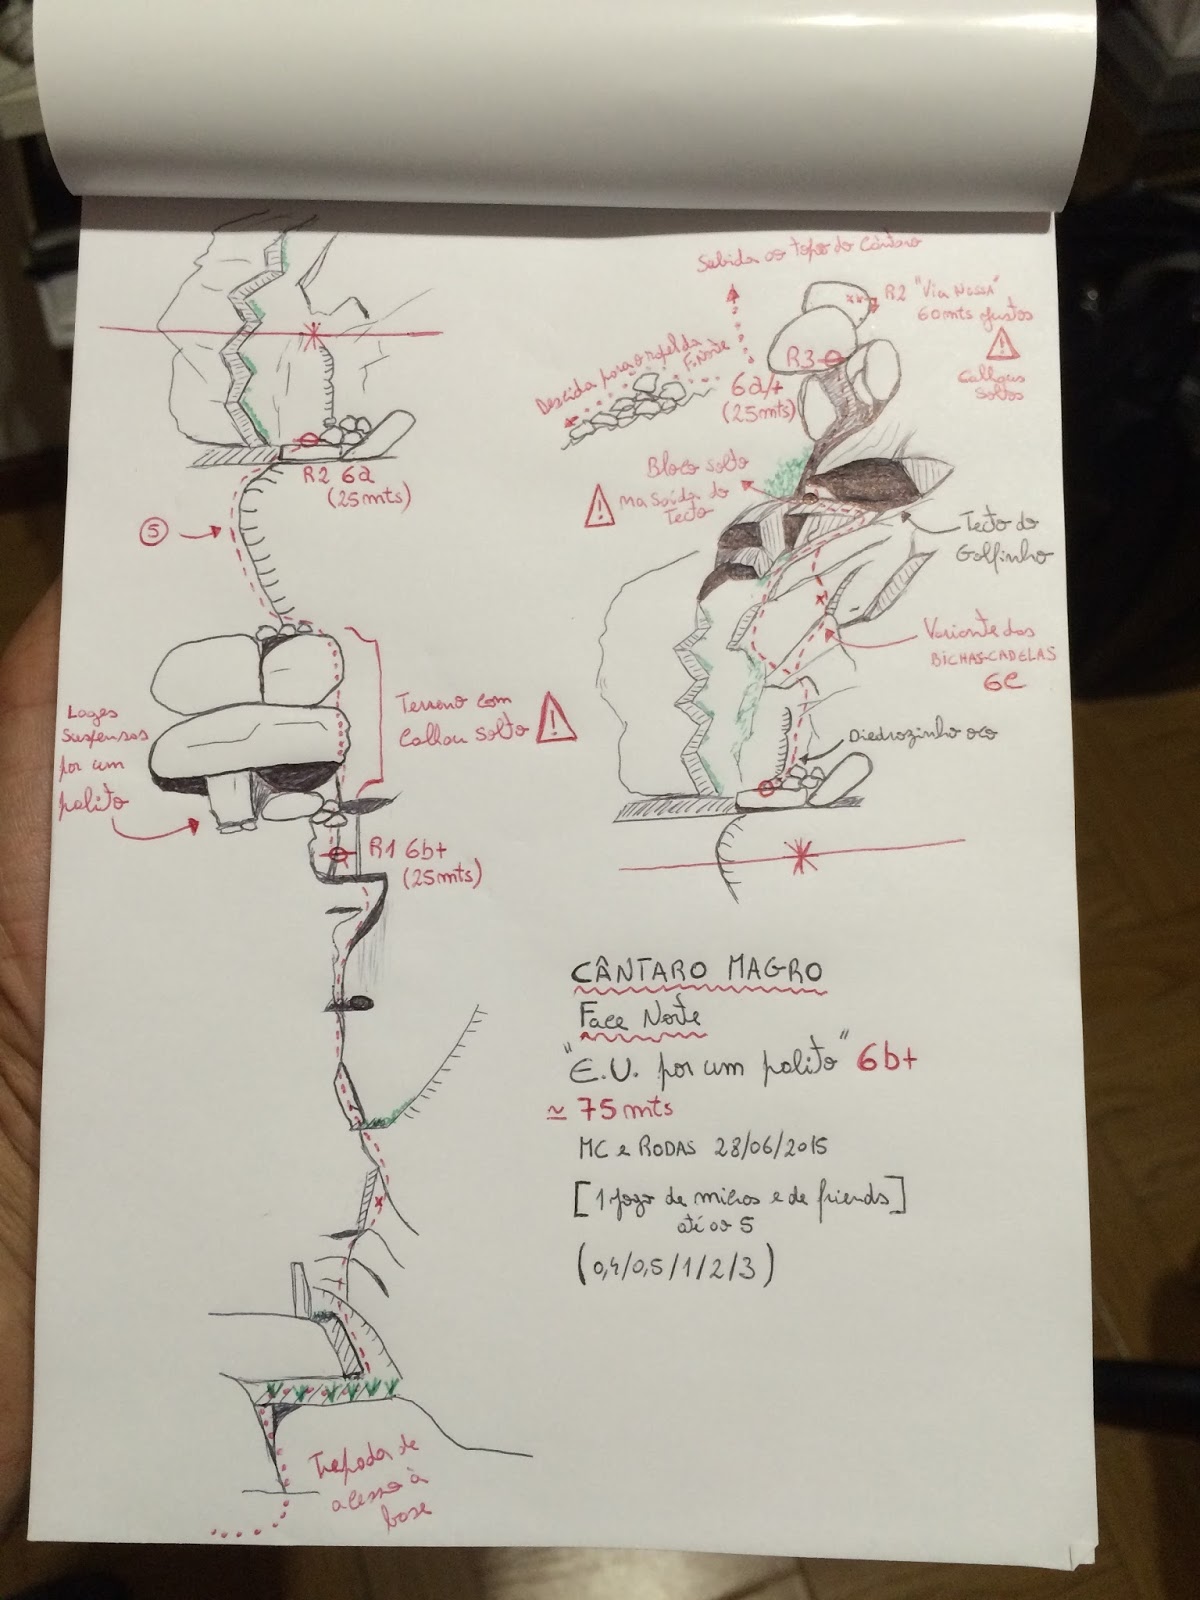 R2 6a
(25mts)
5
Lages
Suspensas
por um
palito
Terreno com
Calhau Solto
R1 6b+
(25mts)
Trepada de
acesso à
base
Subida ao topo do Cântaro
R2 "Via Nossa"
60mts justos
Calhaus
Soltos
R3
Descida para o rapel da
F. Norte
6a/+
(25mts)
Bloco solto
na Saída do
Tecto
Tecto do
Golfinho
Variante das
BICHAS-CADELAS
6c
Diedrozinho oco
CÂNTARO MAGRO
Face Norte
"E.U. por um palito" 6b+
≃ 75mts
MC e RODAS 28/06/2015
[1 jogo de micros e de friends]
até ao 5
(0,4/0,5/1/2/3)